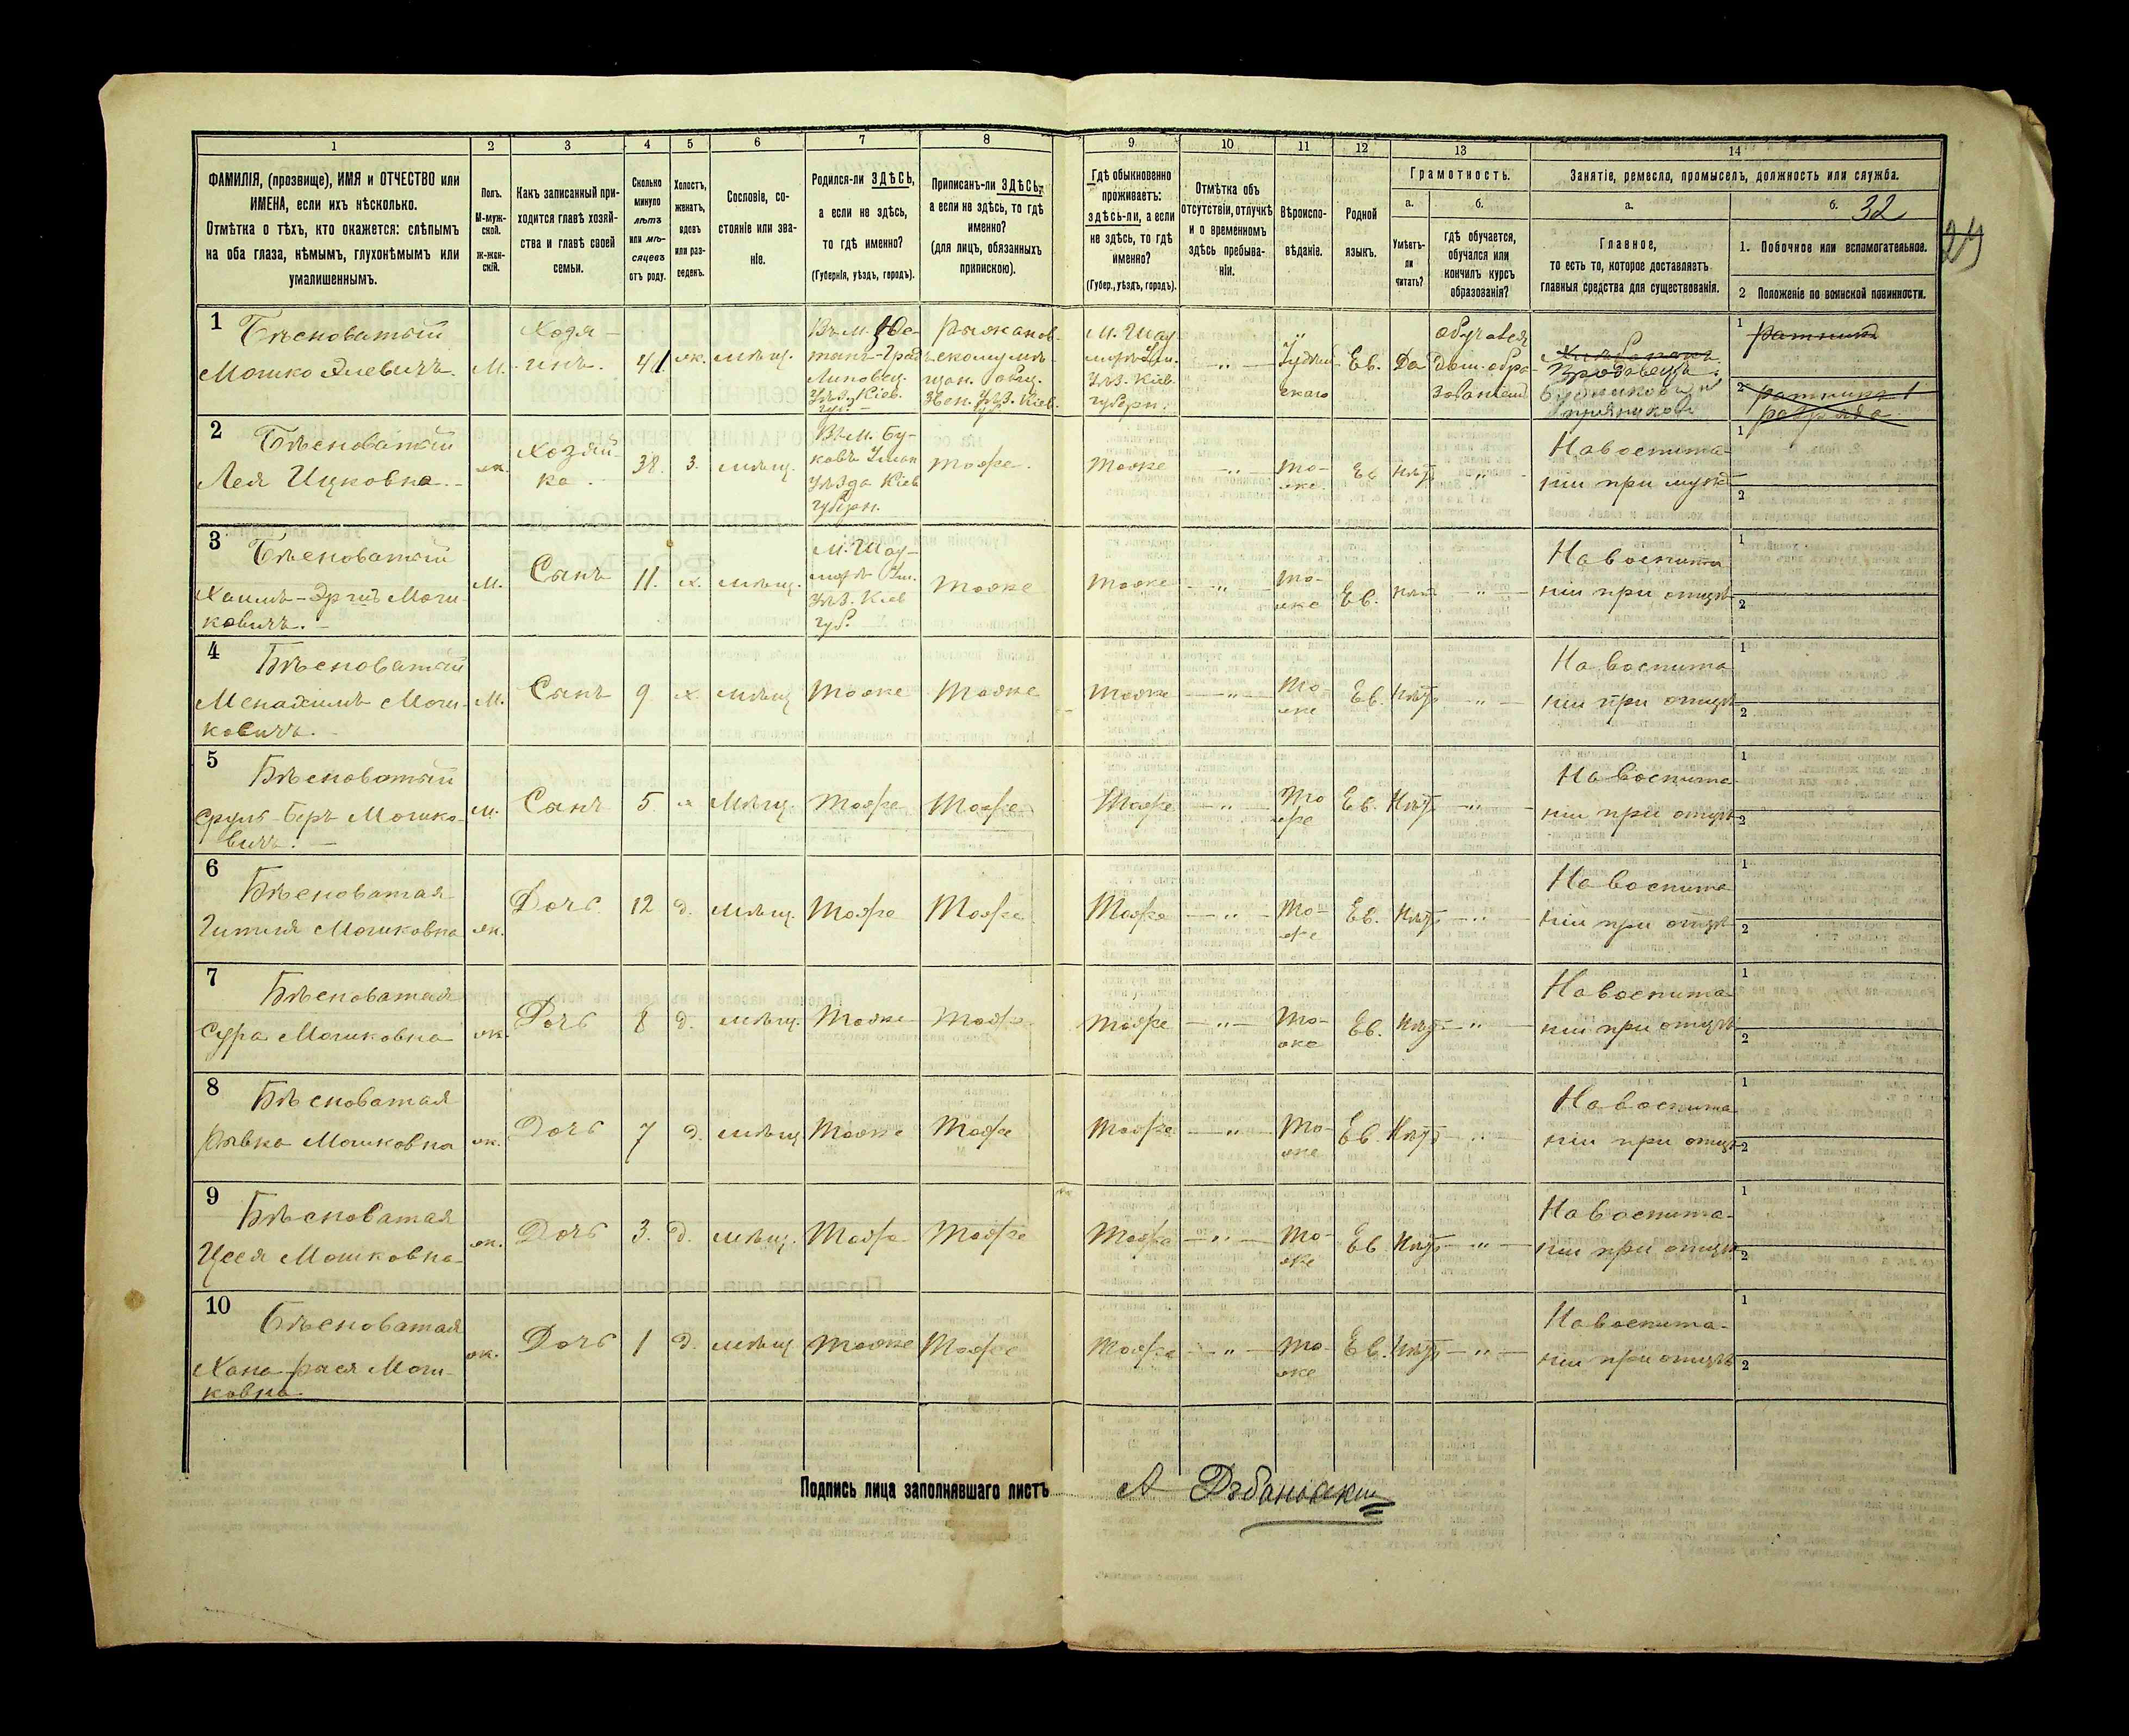 1 2 3 4 5 6 7 8 9 10 11 12 13 14
ФАМИЛІЯ, (прозвище), ИМЯ и ОТЧЕСТВО или
ИМЕНА, если ихъ нѣсколько.
Отмѣтка о тѣхъ, кто окажется: слѣпымъ
на оба глаза, нѣмымъ, глухонѣмымъ или
умалишеннымъ.
Полъ.
М-муж-
ской.
Ж-жен-
скій.
Какъ записанный при-
ходится главѣ хозяй-
ства и главѣ своей
семьи.
Сколько
минуло
лѣтъ
или мѣ-
сяцевъ
отъ роду.
Холостъ,
женатъ,
вдовъ
или раз-
веденъ.
Сословіе, со-
стояніе или зва-
ніе.
Родился-ли ЗДѢСЬ,
а если не здѣсь,
то гдѣ именно?
(Губернія, уѣздъ, городъ).
Приписанъ-ли ЗДѢСЬ,
а если не здѣсь, то гдѣ
именно?
(для лицъ, обязанныхъ
припискою).
Гдѣ обыкновенно
проживаетъ:
здѣсь-ли, а если
не здѣсь, то гдѣ
именно?
(Губер., уѣздъ, городъ).
Отмѣтка объ
отсутствіи, отлучкѣ
и о временномъ
здѣсь пребыва-
ніи.
Вѣроиспо-
вѣданіе.
Родной
языкъ.
Грамотность.
а.
Умѣетъ-
ли
читать?
б.
гдѣ обучается,
обучался или
кончилъ курсъ
образованія?
Занятіе, ремесло, промыселъ, должность или служба.
а.
Главное,
то есть то, которое доставляетъ
главныя средства для существованія.
б. 32
1. Побочное или вспомогательное.
2 Положеніе по воинской повинности.
1 Бѣсноватый
Мошко Элевичъ.
М.
Хозя-
инъ.
41 ж. мѣщ.
Липовец.
Уѣзд Кіев.
губ.
Рыжанов-
скому мѣ-
щан. общ.
Звен. уѣз. Кіев.
губ.
Уѣз. Кіев.
губерн.
— " —
Іудей-
скаго
Ев. Да
обучался
дом. обра-
зованіем
Продавецъ
1 ратникъ
2 ратникъ 1
разряда
2 Бѣсноватый
Лея Ицковна.
ж.
Хозяй-
ка.
38. з. мѣщ.
Въ м. Бу-
ковѣ Уман
уѣзда Кіев
губерн.
тоже. тоже — " — то-
же.
Ев нѣтъ "
На воспита-
ніи при муж
1
2
3 Бѣсноватый
Мош-
ковичъ.
М. Сынъ 11. х. мѣщ.
Уѣз. Кіев
губ.
тоже тоже — " — то-
же Ев. нѣт — " —
На воспита
ніи при отцѣ
1
2
4 Бѣсноватый
Менахимъ Мош-
ковичъ.
М. Сынъ 9 х. мѣщ тоже тоже тоже — " — то
же Ев. Нѣтъ "
На воспита
ніи при отцѣ
1
2
5 Бѣсноватый
Сруль-Беръ Мошко-
вичъ.
М. Сынъ 5 х мѣщ. Тоже Тоже Тоже — " — То
же Ев. Нѣтъ "
На воспита-
ніи при отцѣ
1
2
6 Бѣсноватая
Гитля Мошковна
ж. Дочь 12 д. мѣщ. Тоже Тоже Тоже — " — то-
же Ев. Нѣтъ — " —
На воспита
ніи при отцѣ
1
2
7 Бѣсноватая
Сура Мошковна
ж. Дочь 8 д. мѣщ. Тоже Тоже тоже — " — то-
же Ев. Нѣтъ "
На воспита-
ніи при отцѣ
1
2
8 Бѣсноватая
Рывка Мошковна
ж. Дочь 7 д. мѣщ Тоже Тоже Тоже — " — То-
же Ев. Нѣтъ — " —
На воспита
ніи при отцѣ
1
2
9 Бѣсноватая
Мошковна
ж. Дочь 3. д. мѣщ. Тоже Тоже Тоже — " — то-
же Ев Нѣтъ — " —
На воспита-
ніи при отцѣ
1
2
10 Бѣсноватая
Хана-Рася Мош-
ковна
ж. Дочь 1 д. мѣщ Тоже Тоже Тоже — " — то-
же Ев. Нѣтъ — " —
На воспита-
ніи при отцѣ
1
2
Подпись лица заполнявшаго листъ А